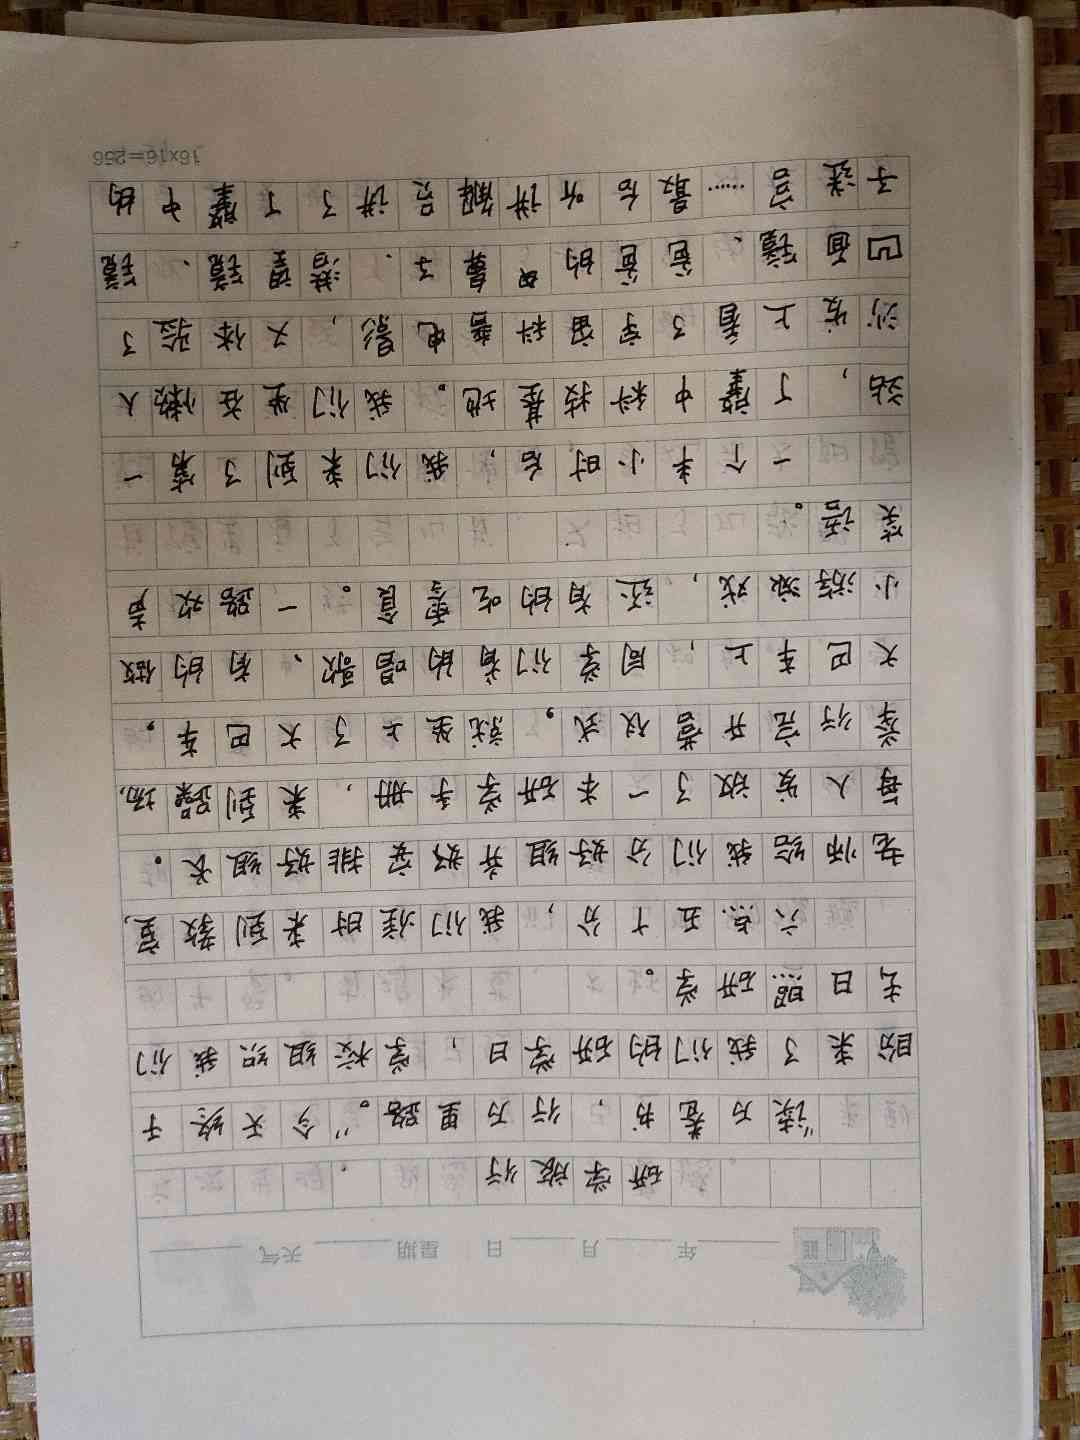 年 月 日 星期 天气
研学旅行
“读万卷书,行万里路。”今天终于
盼来了我们的研学日,学校组织我们
去日照研学。
六点五十分,我们准时来到教室,
老师给我们分好组并好安排好组长。
每人发放了一本研学手册,来到操场,
举行完开营仪式,就坐上了大巴车。
大巴车上,同学们有的唱歌、有的做
小游戏,还有的吃零食。一路欢声
笑语。
一个半小时后,我们来到了第一
站,丁肇中科技基地。我们坐在懒人
沙发上看了宇宙科普电影,又体验了
凹面镜、爸爸的鼻子、潜望镜、镜
子迷宫……最后听讲解员讲了丁肇中的
16×16=256